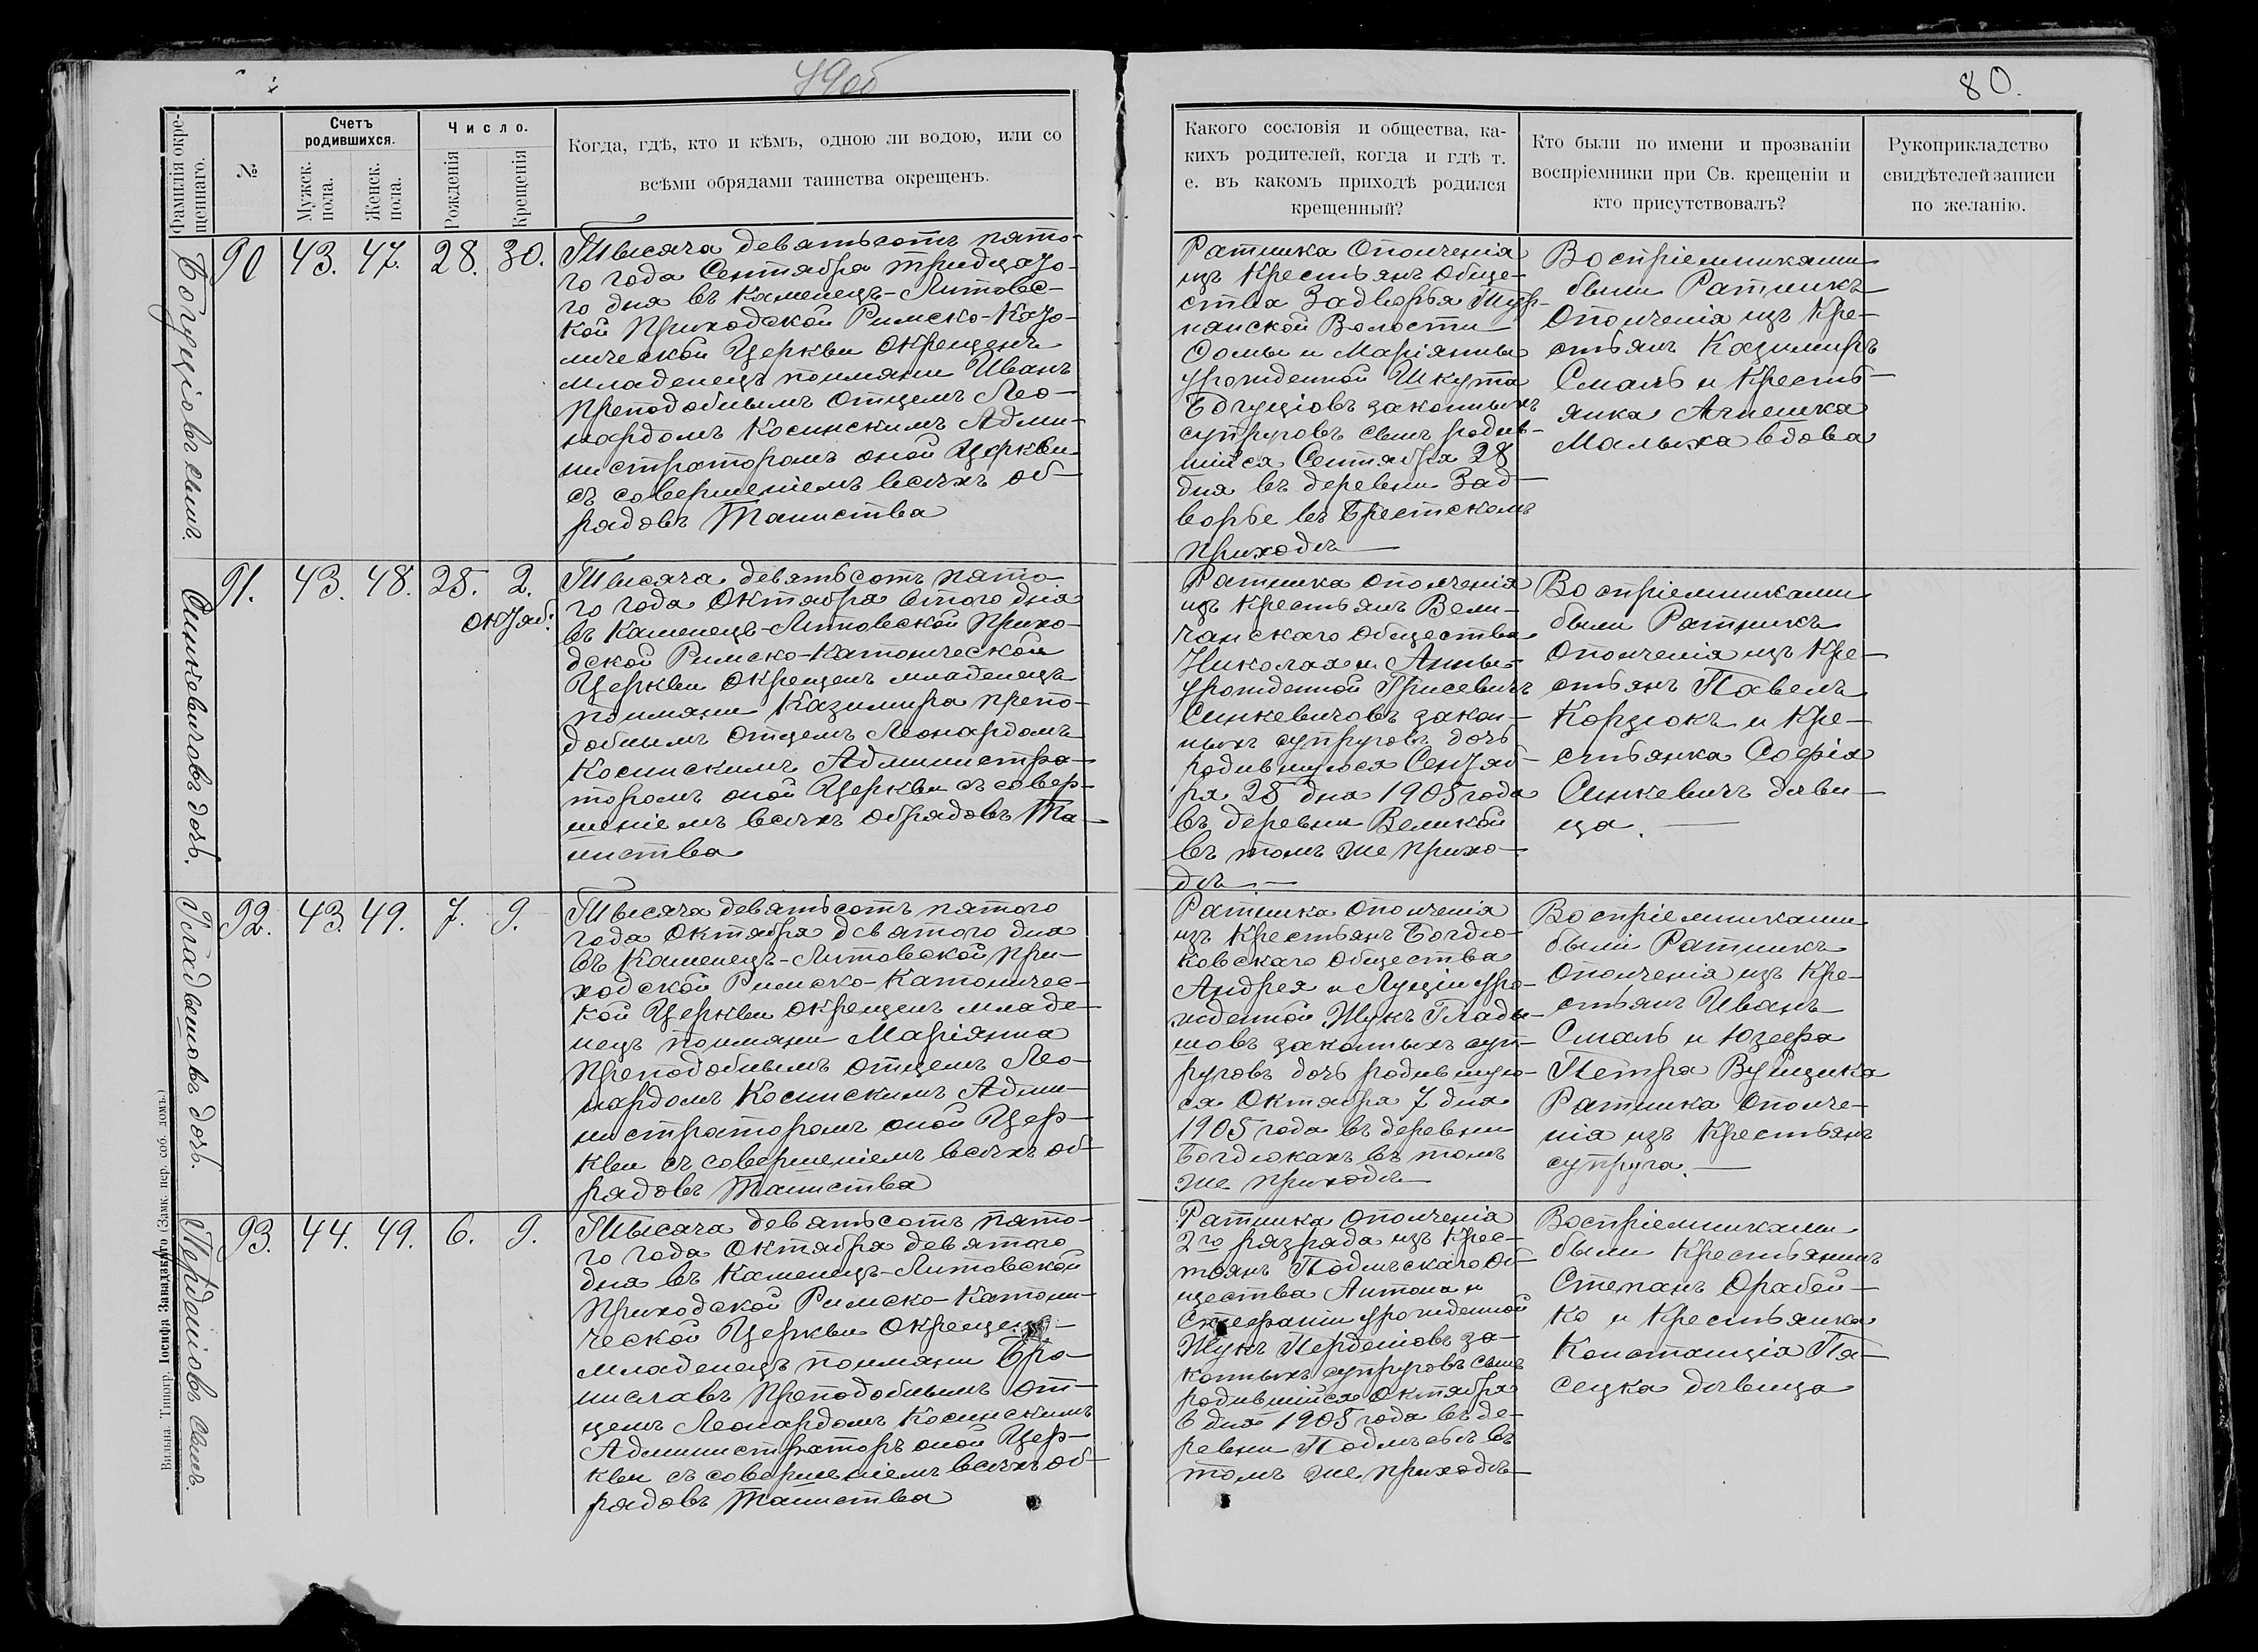 79об
80.
Фамилія окре-
щеннаго.
№
Счетъ
родившихся.
Мужск.
пола.
Женск.
пола.
Число.
Рожденія
Крещенія
Когда, гдѣ, кто и кѣмъ, одною ли водою, или со
всѣми обрядами таинства окрещенъ.
Какого сословія и общества, ка-
кихъ родителей, когда и гдѣ т.
е. въ какомъ приходѣ родился
крещенный?
Кто были по имени и прозванiи
воспріемники при Св. крещеніи и
кто присутствовалъ?
Рукоприкладство
свидѣтелей записи
по желанію.
Богуціовъ сынъ.
90 43. 47. 28. 30.
Тысяча девятьсотъ пято-
го года Сентября тридцато-
го дня въ Каменецъ-Литовс-
кой Приходской Римско-Като-
лической Церкви окрещенъ
младенецъ поимяни Иванъ
Преподобнымъ отцемъ Лео-
нардомъ Косинскимъ Адми-
нистраторомъ оной Церкви
съ совершеніемъ всѣхъ об-
рядовъ Таинства
Ратника Ополченія
изъ Крестьянъ обще-
ства Задворья Тур-
нанской Волости
Фомы и Маріянны
урожденной Шкута
Богуціовъ законныхъ
супруговъ сынъ родив-
шійся Сентября 28
дня въ деревни Зад-
ворье въ Брестскомъ
приходѣ
Воспріемниками
были Ратникъ
Ополченія изъ Кре-
стьянъ Казимиръ
Смаль и Кресть-
янка Агнешка
Малыха вдова
Синкевичовъ дочь.
91. 43. 48. 28. 2.
октяб.
Тысяча девятьсотъ пято
го года Октября втого дня
въ Каменецъ-Литовской Прихо-
дской Римско-Католической
Церкви окрещенъ младенецъ
поимяни Казимира препо-
добнымъ Отцемъ Леонардомъ
Косинскимъ Администра-
торомъ оной Церкви съ совер-
шеніемъ всѣхъ обрядовъ Та-
инства
Ратника ополченія
изъ Крестьянъ Вели-
чанскаго общества
Николая и Анны
урожденной Грисевичъ
Синкевичовъ закон-
ныхъ супруговъ дочь
родившуюся Сентяб-
ря 28 дня 1905 года
въ деревни Великой
въ томъ же прихо-
дѣ
Воспріемниками
были Ратникъ
Ополченія изъ Кре-
стьянъ Павелъ
Корзюкъ и Кре-
стьянка Софія
Синкевичъ дѣви-
ца.
Гладышовъ дочь.
92. 43. 49. 7. 9.
Тысяча девятьсотъ пятого
года Октября девятого дня
въ Каменецъ-Литовской При-
ходской Римско-Католичес-
кой Церкви окрещенъ младе-
нецъ поимяни Маріянна
Преподобнымъ отцемъ Лео-
нардомъ Косинскимъ Адми-
нистраторомъ оной Цер-
кви съ совершеніемъ всѣхъ об-
рядовъ Таинства
Ратника Ополченія
изъ Крестьянъ Богдю-
ковскаго Общества
Андрея и Луціи уро-
жденной Жукъ Глады-
шовъ законныхъ суп-
руговъ дочь родившую-
ся Октября 7 дня
1905 года въ деревни
Богдюкахъ въ томъ
же приходѣ
Воспріемниками
были Ратникъ
Ополченія изъ Кре-
стьянъ Иванъ
Смаль и Юзефа
Петра Вуйщика
Ратника Ополче-
нія изъ Крестьянъ
супруга.
Пердеціовъ сынъ.
93. 44. 49. 6. 9.
Тысяча девятьсотъ пято-
го года Октября девятого
дня въ Каменецъ-Литовской
Приходской Римско-Католи-
ческой Церкви окрещенъ
младенецъ поимяни Бро-
ниславъ Преподобнымъ От-
цемъ Леонардомъ Косинскимъ
Администраторъ оной Цер-
кви съ совершеніемъ всѣхъ об-
рядовъ Таинства
Ратника Ополченія
2го разряда изъ Крес-
тьянъ Подлѣскаго Об-
щества Антона и
Стефаніи урожденной
Жукъ за-
конныхъ супруговъ сынъ
родившійся Октября
6 дня 1905 года въ де-
ревни Подлѣсьѣ въ
томъ же приходѣ
Воспріемниками
были Крестьянинъ
Степанъ Орабей-
ко и Крестьянка
Констанція Пя-
сецка дѣвица
Вильна. Типогр. Іосифа Завадзкаго (Замк. пер. соб. домъ.)